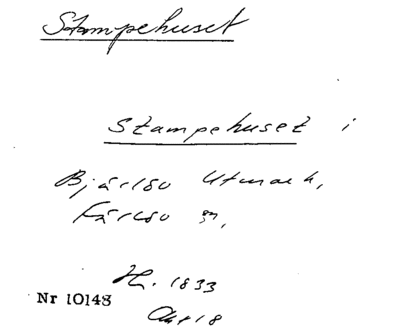 Stampehuset
Stampehuset i
Bjärlöv Utmark,
Färlöv sn,
H. 1833
Nr 10148
Akt 18